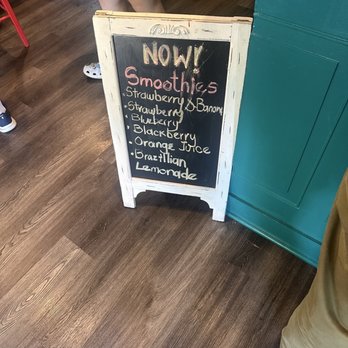 NOW!
Smoothies
• Strawberry & Banana
• Strawberry
• Blueberry
• Blackberry
• Orange Juice
• Braztilian
Lemonade